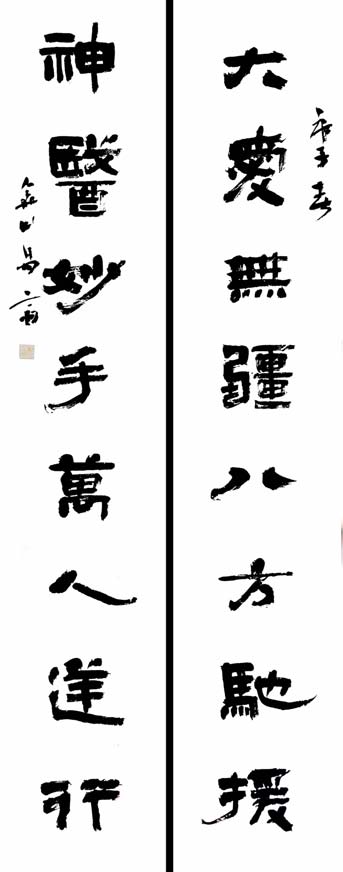 庚子春
大愛無疆八方馳援
神醫妙手萬人逆行